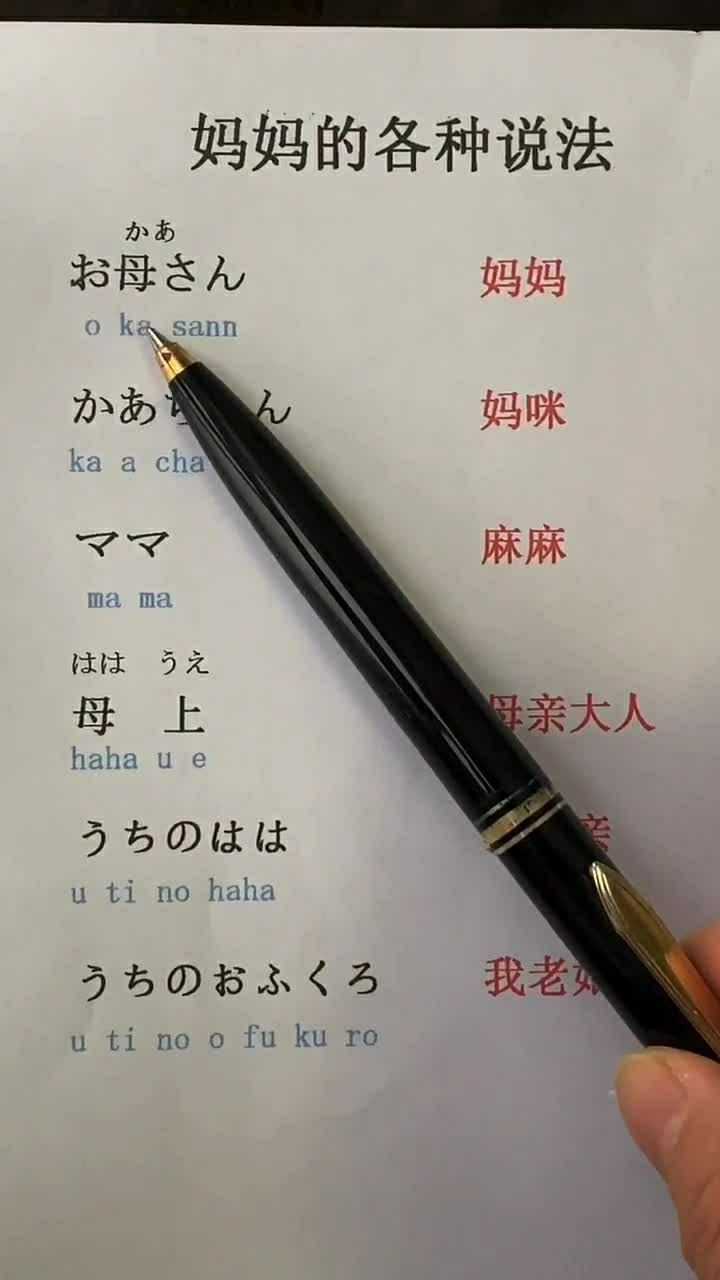 妈妈的各种说法
かあ
お母さん 妈妈
o ka sann
かあ ん 妈咪
ka a cha
ママ 麻麻
ma ma
はは うえ
母 上 母亲大人
haha u e
うちのはは 亲
u ti no haha
うちのおふくろ 我老
u ti no o fu ku ro